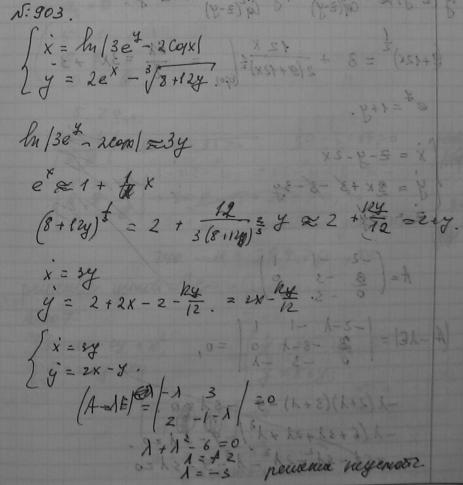 №903.
{ ẋ = ln|3e^y - 2cosx|
ẏ = 2e^x - ∛(8+12y)
ln|3e^y - 2cosx| ≈ 3y
e^x ≈ 1 + x
(8+12y)^(1/3) = 2 + 12/(3(8+12y)^(2/3)) y ≈ 2 + 12y/12 = 2+y.
ẋ = 3y
ẏ = 2 + 2x - 2 - 12y/12 = 2x - 12y/12.
{ ẋ = 3y
ẏ = 2x - y.
(A-λE) = |-λ 3
2 -1-λ| = 0
λ + λ² - 6 = 0
λ = +2
λ = -3 решение неустойч.